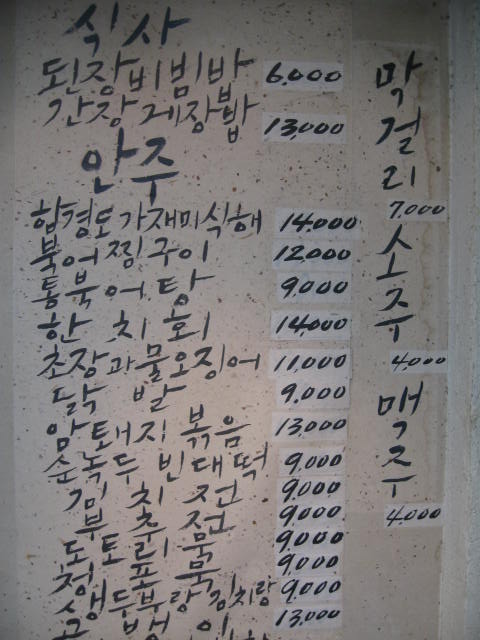 식사
된장비빔밥 6,000
간장게장밥 13,000
안주
함경도가재미식해 14,000
북어찜구이 12,000
통북어탕 9,000
한치회 14,000
초장과물오징어 11,000
닭발 9,000
암퇘지볶음 13,000
순녹두빈대떡 9,000
김치전 9,000
부추전 9,000
도토리묵 9,000
청포묵 9,000
생두부랑김치랑 9,000
13,000
막걸리
7,000
소주
4,000
맥주
4,000